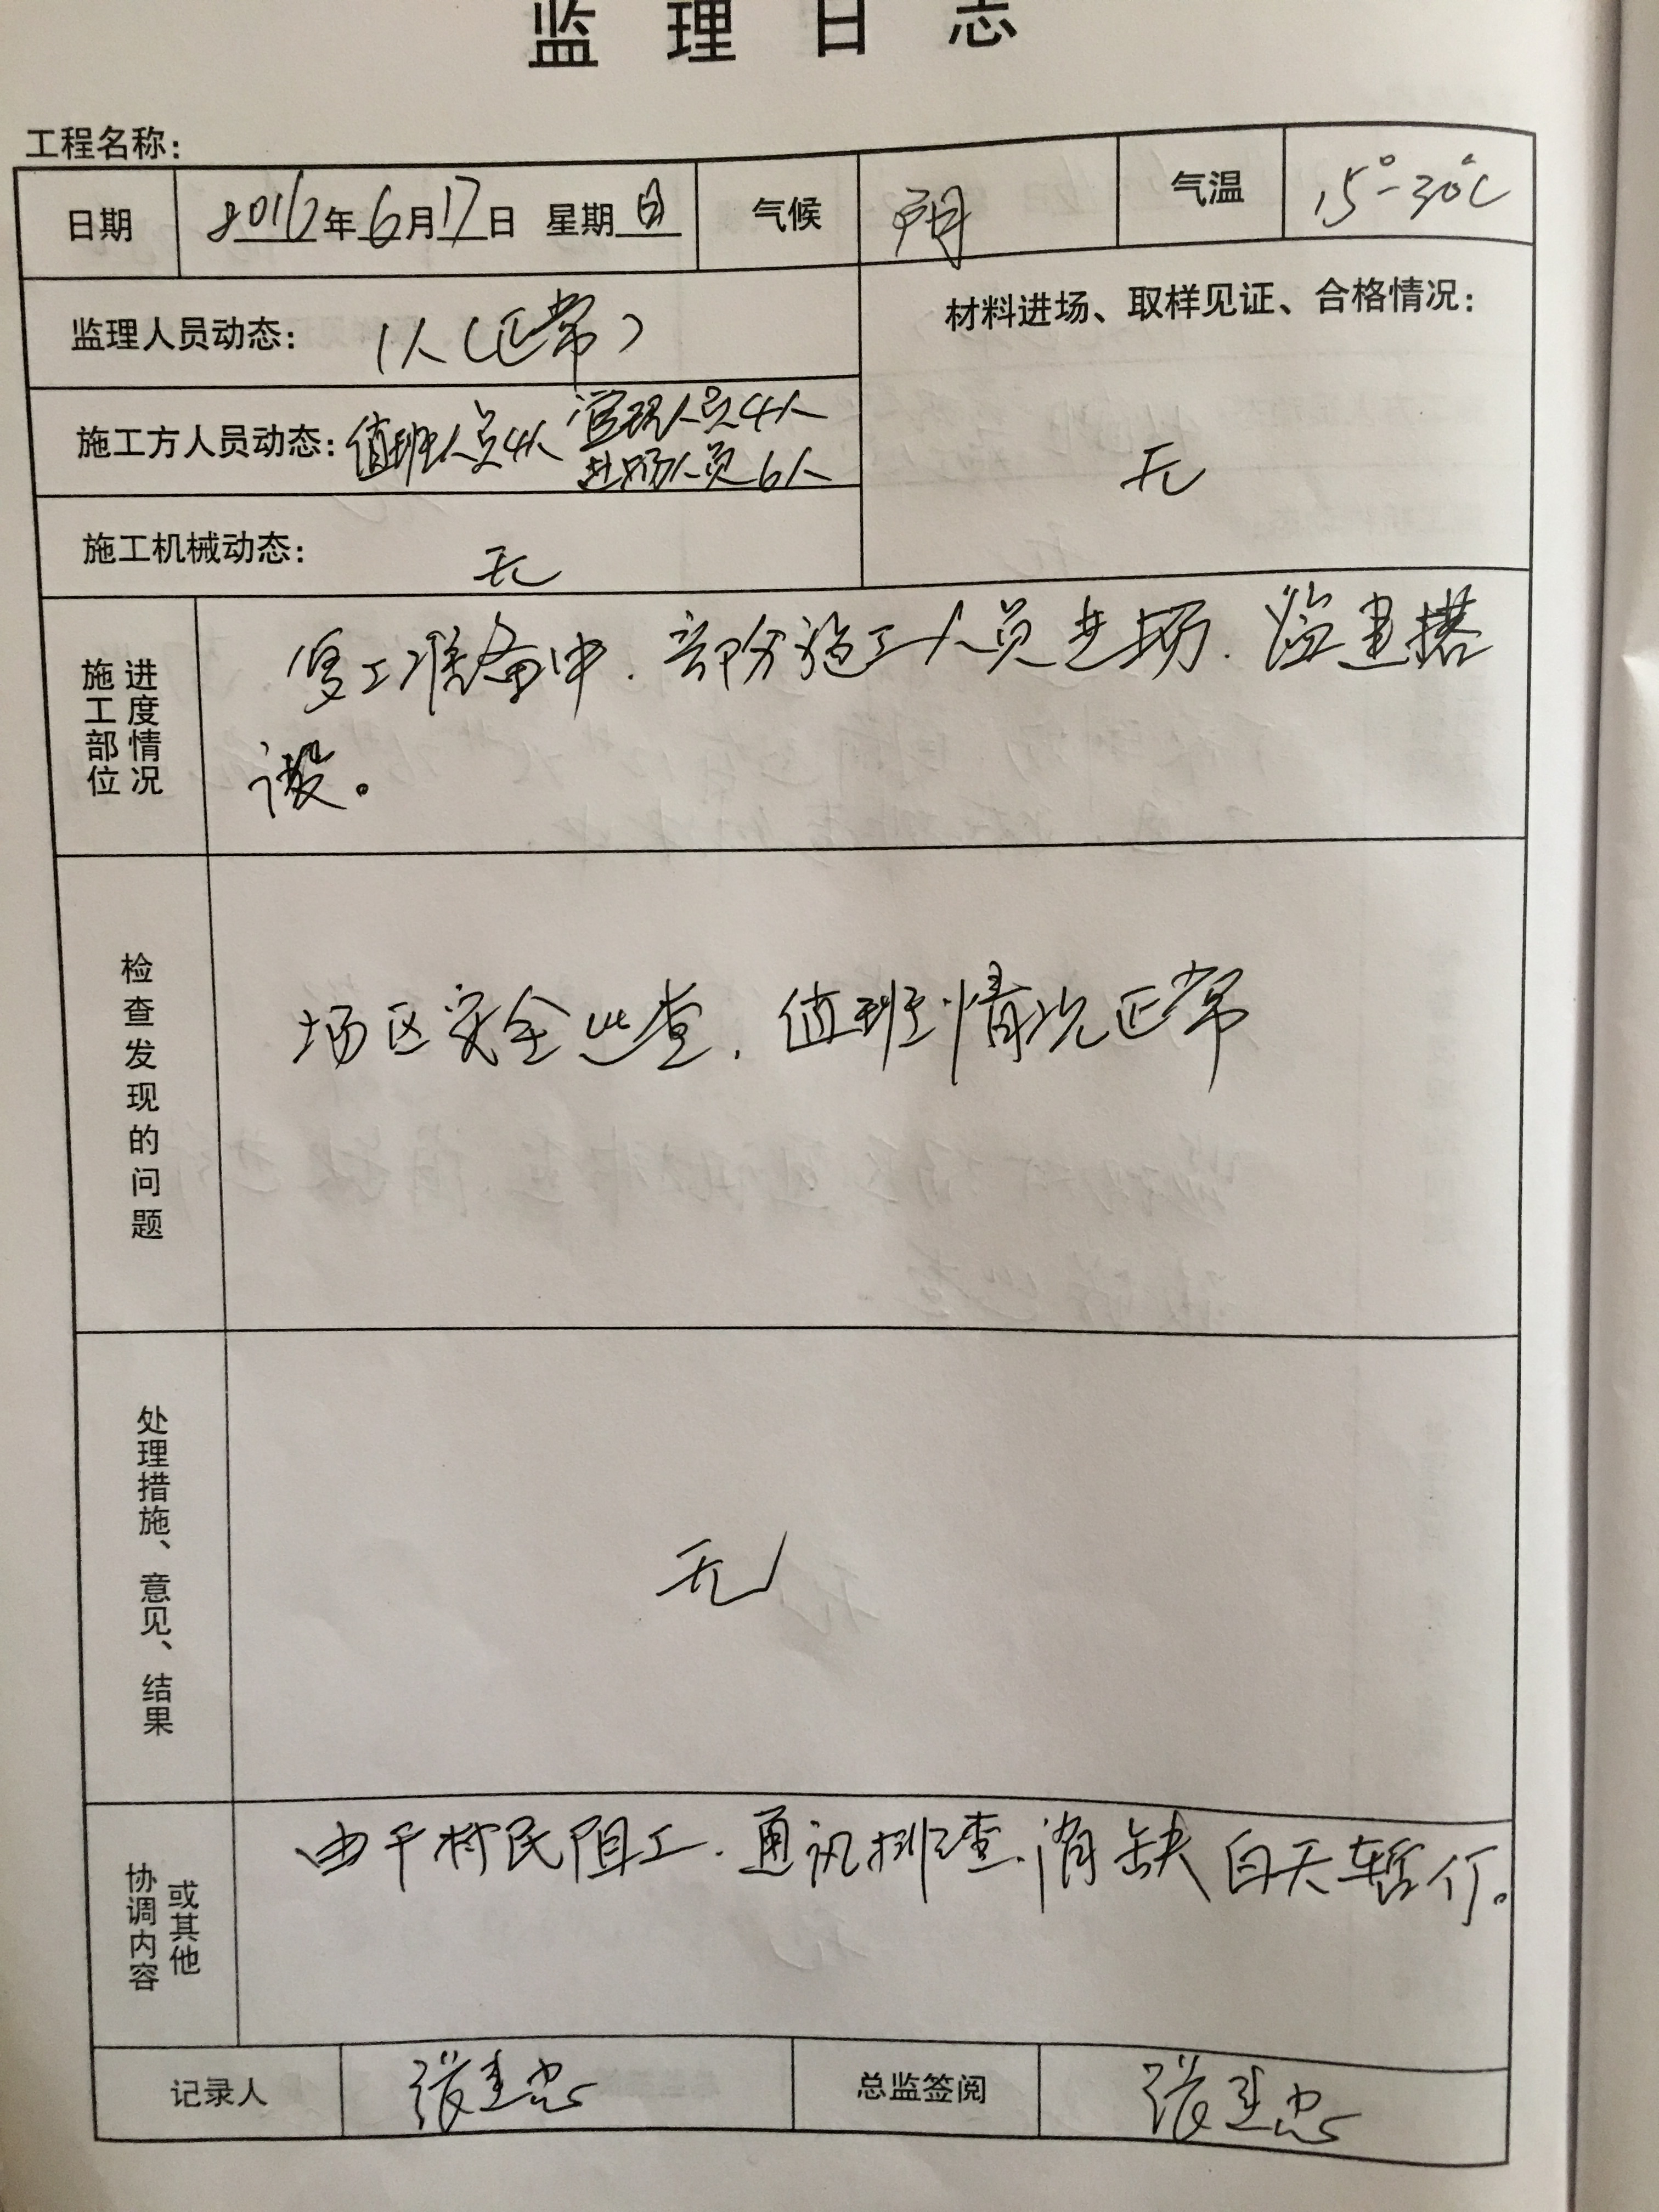 监理日志
工程名称：
日期 年6月17日 星期日 气候 气温 15°-30℃
监理人员动态： 1人（正常） 材料进场、取样见证、合格情况：
管理人员4人
施工方人员动态：值班人员4人
进场人员6人
无
施工机械动态： 无
施工部位
进度情况
复工准备中.部份施工人员进场.临建搭
设。
检查发现的问题
场区安全巡查，值班情况正常
处理措施、意见、结果
无
协调内容
或其他
由于村民阻工.通讯排查.消缺白天暂停。
记录人 张建忠 总监签阅 张建忠